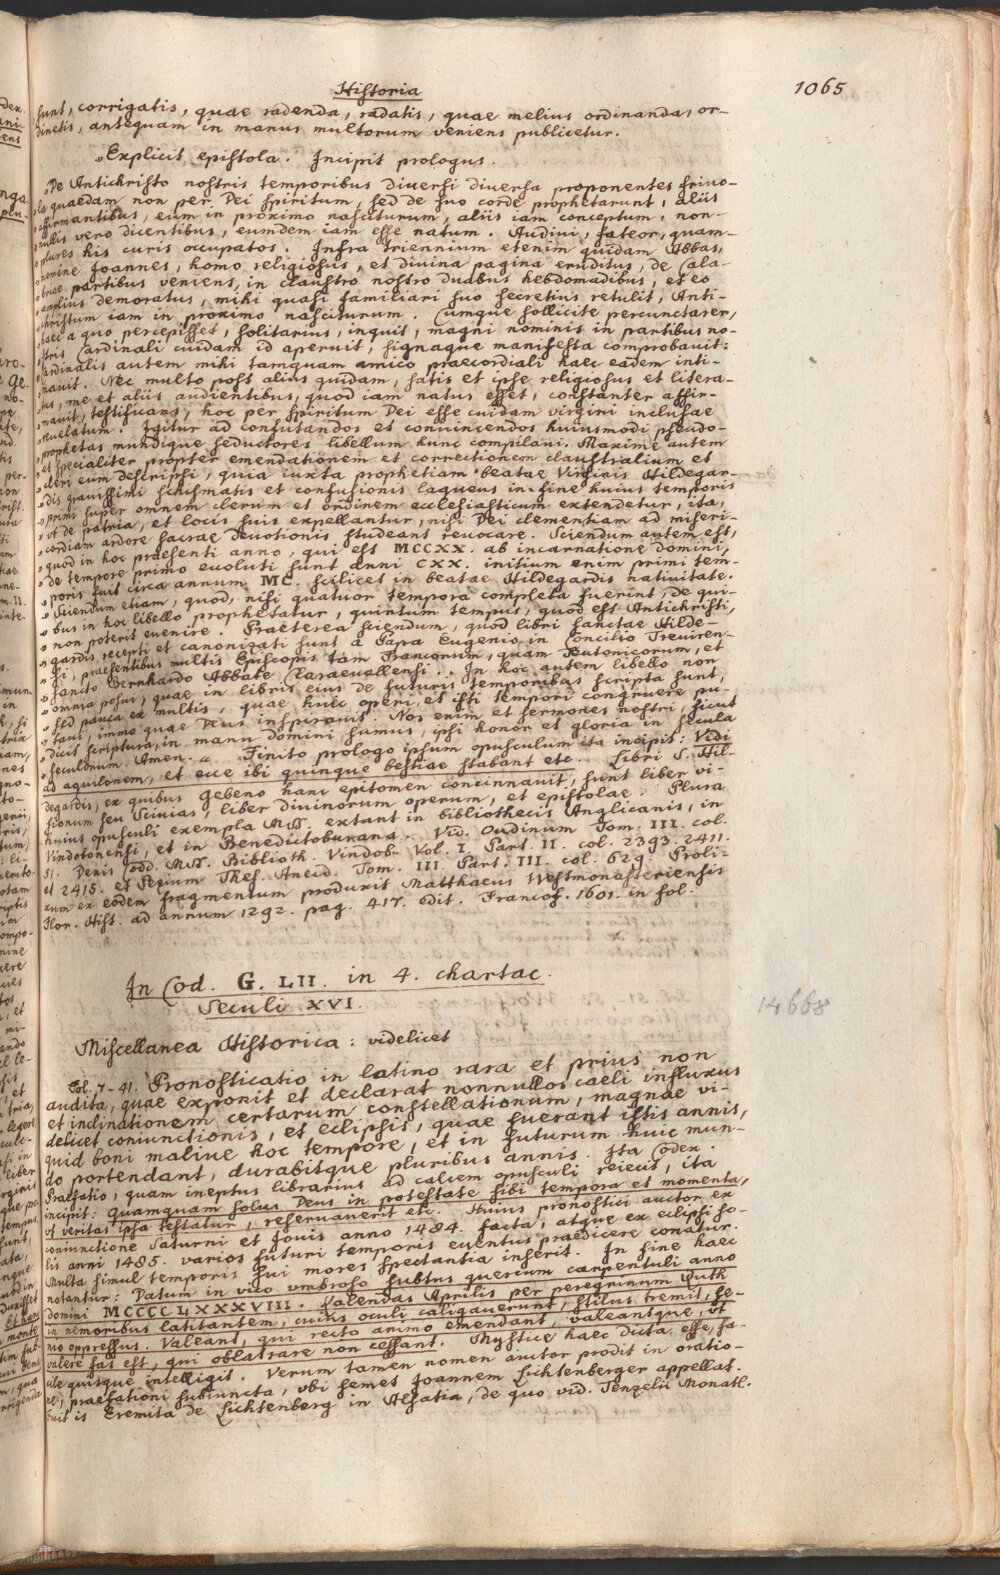 Historia
1065
sunt, corrigatis, quae radenda, radatis, quae melius ordinanda, or-
dinetis, antequam in manus multorum veniens publicetur.
„Explicit epistola. Incipit prologus.
„De Antichristo nostris temporibus diversi diversa proponentes frivo-
„la quaedam non per Dei spiritum, sed de suo corde prophetarunt, aliis
„affirmantibus, eum in proximo nasciturum, aliis iam conceptum, non-
„nullis vero dicentibus, eumdem iam esse natum. Audivi, fateor, quam-
„plures his curis occupatos. Infra triennium etenim quidam Abbas,
„nomine Joannes, homo religiosus, et divina pagina eruditus, de Cala-
„briae partibus veniens, in claustro nostro duabus hebdomadibus, et eo
„amplius demoratus, mihi quasi familiari suo secretius retulit, Anti-
„christum iam in proximo nasciturum. Cumque sollicite percunctarer,
„haec a quo percepisset, solitarius, inquit, magni nominis in partibus no-
„stris Cardinali cuidam id aperuit, signaque manifesta comprobavit:
„Cardinalis autem mihi tamquam amico praecordiali haec eadem inti-
„mavit. Nec multo post alius quidam, satis et ipse religiosus et litera-
„tus, me et aliis audientibus, quod iam natus esset, constanter affir-
„mavit, testificans, hoc per spiritum Dei esse cuidam virgini inclusae
„revelatum. Igitur ad confutandos et convincendos huiusmodi pseudo-
„prophetas mundique seductores libellum hunc compilavi. Maxime autem
„et specialiter propter emendationem et correctionem claustralium et
„cleri eum descripsi, quia iuxta prophetiam beatae Virginis Hildegar-
„dis gravissimi schismatis et confusionis laqueus in fine huius temporis
„primi super omnem clerum et ordinem ecclesiasticum extendetur, ita,
„ut de patria, et locis suis expellantur, nisi Dei clementiam ad miseri-
„cordiam ardore sacrae devotionis studeant revocare. Sciendum autem est,
„quod in hoc praesenti anno, qui est MCCXX. ab incarnatione domini,
„de tempore primo evoluti sunt anni CXX. initium enim primi tem-
„poris fuit circa annum MC. scilicet in beatae Hildegardis nativitate.
„Sciendum etiam, quod, nisi quatuor tempora completa fuerint, de qui-
„bus in hoc libello prophetatur, quintum tempus, quod est Antichristi,
„non poterit evenire. Praeterea sciendum, quod libri sanctae Hilde-
„gardis recepti et canonizati sunt a Papa Eugenio in Concilio Treviren-
„si, praesentibus multis Episcopis tam Francorum, quam Teutonicorum, et
„sancto Bernhardo Abbate Claraevallensi. In hoc autem libello non
„omnia posui, quae in libris eius de futuris temporibus scripta sunt,
„sed pauca ex multis, quae huic operi, et isti tempori congruere pu-
„tavi, immo quae Deus inspiravit. Nos enim et sermones nostri, sicut
„dicit scriptura, in manu domini sumus, ipsi honor et gloria in secula
„seculorum. Amen. „ Finito prologo ipsum opusculum ita incipit: Vidi
ad aquilonem, et ecce ibi quinque bestiae stabant etc. Libri S. Hil-
degardis, ex quibus Gebeno hanc epitomen concinnavit, sunt liber vi-
sionum seu Scivias, liber divinorum operum, et epistolae. Plura
huius opusculi exempla MSS. extant in bibliothecis Anglicanis, in
Vindobonensi, et in Benedictoburana. Vid. Oudinum Tom. III. col.
51. Denis Codd. MSS. Biblioth. Vindob. Vol. I. Part. II. col. 2393. 2411.
et 2415. et Pezium Thes. Anecd. Tom. III. Part. III. col. 629. Proli-
xum ex eodem fragmentum produxit Matthaeus Westmonasteriensis
Flor. Hist. ad annum 1292. pag. 417. edit. Francof. 1601. in fol.
In Cod. G. LII. in 4. chartac.
Seculi XVI.
14668
Miscellanea Historica: videlicet
Fol. 7-41. Pronosticatio in latino rara et prius non
audita, quae exponit et declarat nonnullos caeli influxus
et inclinationem certarum constellationum, magnae vi-
delicet coniunctionis, et eclipsis, quae fuerant istis annis,
quid boni malive hoc tempore, et in futurum huic mun-
do portendant, durabitque pluribus annis. Ita Codex.
Praefatio, quam ineptus librarius ad calcem opusculi reiecit, ita
incipit: quamquam solus Deus in potestate sibi tempora et momenta,
ut veritas ipsa testatur, reservaverit etc. Huius pronostici auctor ex
coniunctione Saturni et Jovis anno 1484. facta, atque ex eclipsi so-
lis anni 1485. varios futuri temporis eventus praedicere conatur.
Multa simul temporis sui mores spectantia inserit. In fine haec
notantur: Datum in vico umbroso subtus quercum carpentuli anno
domini MCCCCLXXXVIII. Kalendas Aprilis per peregrinum Ruth
in nemoribus latitantem, cuius oculi caligaverunt, stilus tremit, se-
nio oppressus. Valeant, qui recto animo emendant, valeantque, ut
valere fas est, qui oblatrare non cessant. Mystice haec dicta esse, fa-
cile quisque intelligit. Verum tamen nomen auctor prodit in oratio-
ne, praefationi subiuncta, ubi semet Joannem Lichtenberger appellat.
Fuit is Eremita de Lichtenberg in Alsatia, de quo vid. Tenzelii Monatl.